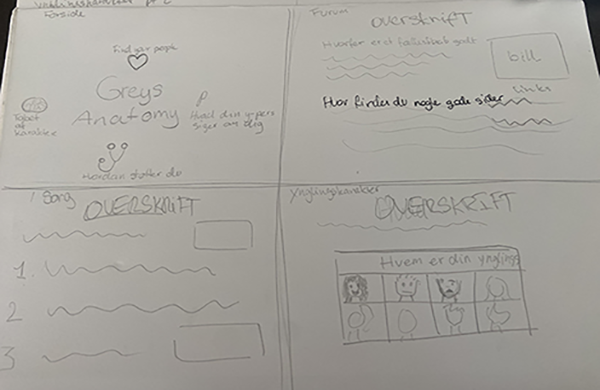 Forside
Find your people
Greys
Anatomy
Tabet
af
karakter
Hvad din y-pers
siger om dig
Hvordan støtter du
Forum
OVERSKRIFT
Hvorfor er et godt
bill
links
Hvor finder du nogle gode sider
Sang
OVERSKRIFT
1.
2
3
Ynglingskarakter
OVERSKRIFT
Hvem er din ynglings